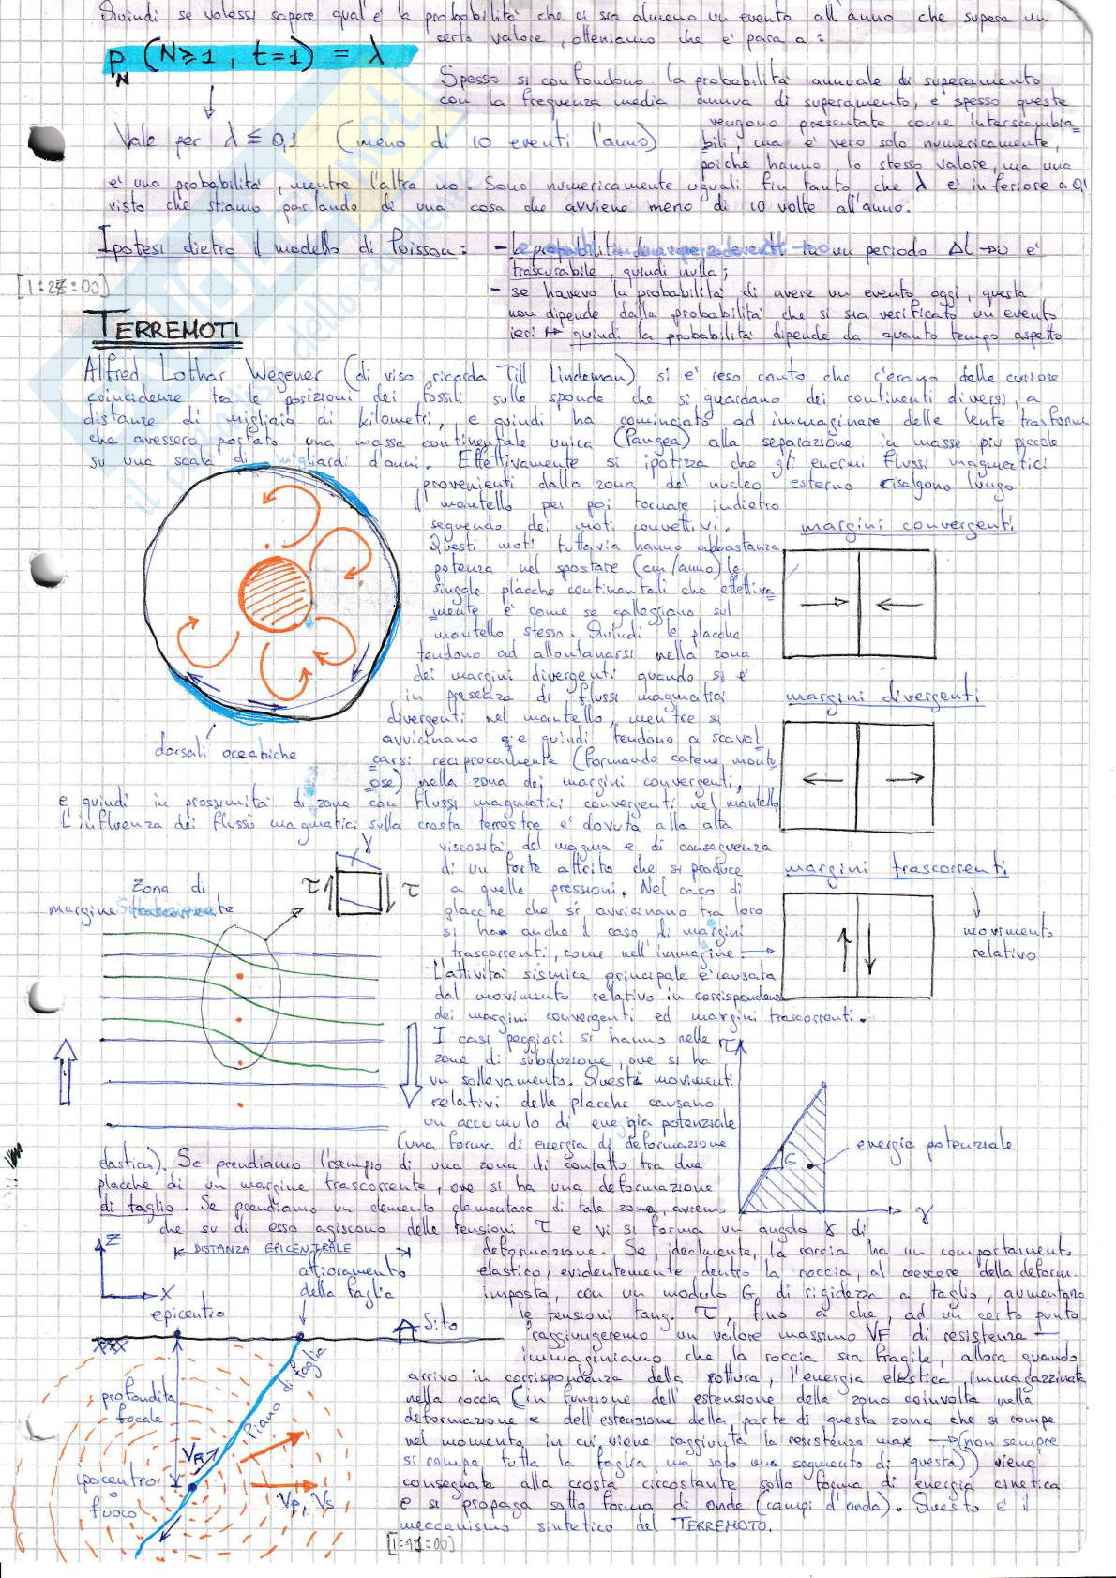 Quindi se volessi sapere qual'è la probabilità che ci sia almeno un evento all'anno che supera un
certo valore, otteniamo che è pari a:
P_N (N≥1, t=1) = λ
Spesso si confondono la probabilità annuale di superamento
con la frequenza media annua di superamento, e spesso queste
vengono presentate come interscambia=
Vale per λ ≤ 0,1 (meno di 10 eventi l'anno)
bili, ma è vero solo numericamente,
poiché hanno lo stesso valore, ma una
è una probabilità, mentre l'altra no. Sono numericamente uguali fin tanto che λ è inferiore a 0,1
visto che stiamo parlando di una cosa che avviene meno di 10 volte all'anno.
Ipotesi dietro il modello di Poisson: - un periodo Δt→0 è
trascurabile, quindi nulla;
[1:27:00]
- se havevo la probabilità di avere un evento oggi, questa
non dipende dalla probabilità che si sia verificato un evento
ieri ↦ quindi la probabilità dipende da quanto tempo aspetto
TERREMOTI
Alfred Lothar Wegener (di viso ricorda Till Lindeman) si è reso conto che c'erano delle curiose
coincidenze tra le posizioni dei fossili sulle sponde che si guardano dei continenti diversi, a
distanze di migliaia di kilometri, e quindi ha cominciato ad immaginare delle lente trasform.
che avessero portato una massa continentale unica (Pangea) alla separazione in masse più piccole
su una scala di migliardi d'anni. Effettivamente si ipotizza che gli enormi flussi magmatici
provenienti dalla zona del nucleo esterno risalgono lungo
il mantello per poi tornare indietro
seguendo dei moti convettivi.
Questi moti tuttavia hanno abbastanza
potenza nel spostare (cm/anno) le
singole placche continentali che effettiva=
mente è come se galleggiano sul
mantello stesso. Quindi le placche
tendono ad allontanarsi nella zona
dei margini divergenti quando si è
in presenza di flussi magmatici
divergenti nel mantello, mentre si
avvicinano e quindi tendono a scaval=
carsi reciprocamente (formando catene montu=
ose) nella zona dei margini convergenti,
e quindi in prossimità di zone con flussi magmatici convergenti nel mantello
L'influenza dei flussi magmatici sulla crosta terrestre è dovuta alla alta
viscosità del magma e di conseguenza
di un forte attrito che si produce
a quelle pressioni. Nel caso di
placche che si avvicinano tra loro
si ha anche il caso di margini
trascorrenti, come nell'immagine →
L'attività sismica principale è causata
dal movimento relativo in corrispondenza
dei margini convergenti ed margini trascorrenti.
I casi peggiori si hanno nelle
zone di subduzione, ove si ha
un sollevamento. Questi movimenti
relativi delle placche causano
un accumulo di energia potenziale
(una forma di energia di deformazione
elastica). Se prendiamo l'esempio di una zona di contatto tra due
placche di un margine trascorrente, ove si ha una deformazione
di taglio. Se prendiamo un elemento elementare di tale zona, avremo
che su di esso agiscono delle tensioni τ e vi si forma un angolo γ di
deformazione. Se, idealmente, la roccia ha un comportamento
elastico, evidentemente dentro la roccia, al crescere della deform.
imposta, con un modulo G di rigidezza a taglio, aumentano
le tensioni tang. τ, fino a che, ad un certo punto
raggiungeremo un valore massimo VF di resistenza —
immaginiamo che la roccia sia fragile, allora quando
arrivo in corrispondenza della rottura, l'energia elastica immagazzinata
nella roccia (in funzione dell'estensione della zona coinvolta nella
deformazione e dell'estensione della parte di questa zona che si rompe
nel momento in cui viene raggiunta la resistenza max → (non sempre
si rompe tutta la faglia ma solo una segmento di questa)) viene
consegnata alla crosta circostante sotto forma di energia cinetica
e si propaga sotto forma di onde (campi d'onda). Questo è il
meccanismo sintetico del TERREMOTO.
[1:41:00]
margini convergenti
margini divergenti
margini trascorrenti
movimento
relativo
dorsali oceaniche
Zona di
margine
γ
τ
τ
τ
G
energia potenziale
γ
Z
X
DISTANZA EPICENTRALE
affioramento
della faglia
epicentro
Sito
profondità
focale
Piano di faglia
V_R
ipocentro
o
fuoco
V_P, V_S